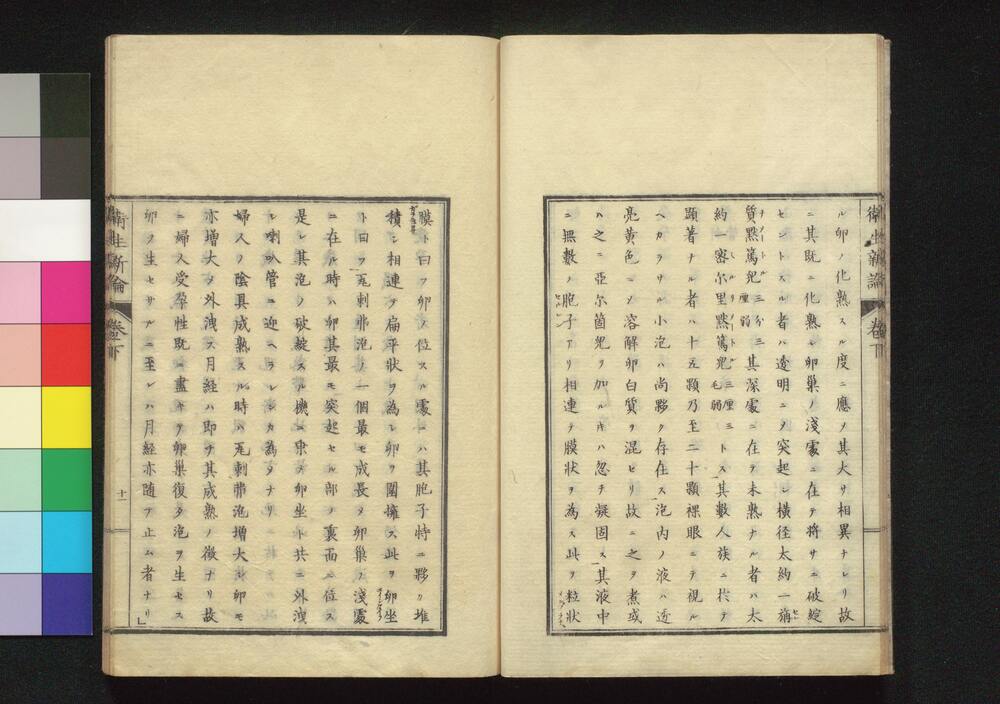 衛生新論
卷下
ル卵ノ化熟スル度ニ應ノ其大サ相異ナレリ故
ニ其既ニ化熟シ卵巢ノ淺處ニ在テ將サニ破綻
セントスル者ハ透明ニヲ突起シ横径太約一
質 三分三厘弱 其深處ニ在テ未熟ナル者ハ太
約一密尓里 三厘三毛弱 トス其數人族ニ扵テ
顕著ナル者ハ十五顆乃至二十顆裸眼ニテ視ル
ヘカラサル小泡ハ尚夥ク存在ス泡内ノ液ハ透
亮黄色ニメ溶解卵白質ヲ混ヒリ故ニ之ヲ煮或
ハ之ニ亞尓箇兒ヲ加ルキハ忽チ凝固ス其液中
ニ無數ノ胞子アリ相連テ膜状ヲ為ス此ヲ粒状
膜ト曰フ卵ノ位スル處ニハ其胞子特ニ夥ク堆
積シ相連テ扁平状ヲ為シ卵ヲ圍擁ス此ヲ卵坐
ト曰フ瓦剌弗泡ノ一個最モ成長メ卵巢ノ淺處
ニ在ル時ハ卵其最モ突起セル部ノ裏面ニ位ス
是レ其泡ノ破綻スル機ニ乗メ卵坐ト共ニ外洩
シ喇叭管ニ迎ヘラレンカ為タナリ
婦人ノ陰具成熟スル時ハ瓦剌弗泡増大メ卵モ
亦増大メ外洩ス月経ハ即チ其成熟ノ徴ナリ故
ニ婦人受孕性既ニ盡キテ卵巢復タ泡ヲ生セス
卵ノ生セサルニ至レハ月経亦随テ止ム者ナリ」
衛生新論
卷下
十一